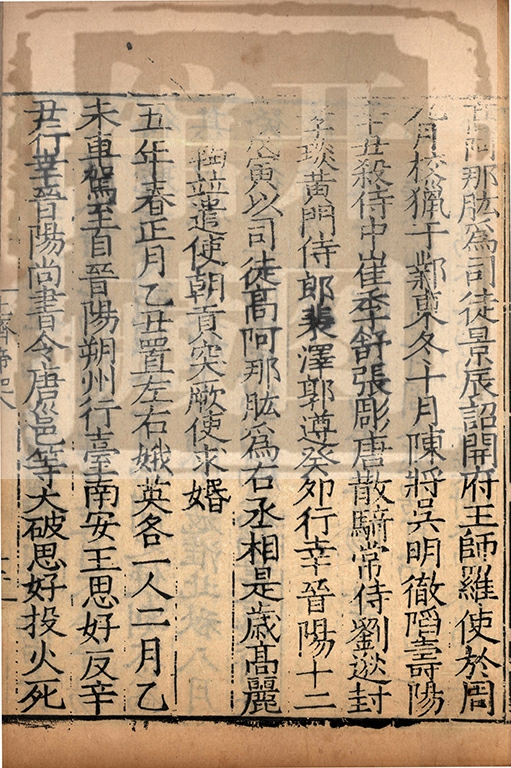 阿那肱爲司徒景辰詔開府王師羅使於周
九月校獵于鄴東冬十月陳將吳明徹陷壽陽
辛丑殺侍中崔季舒張彫唐散騎常侍劉逖封
孝琰黃門侍郎裴澤郭遵癸卯行幸晉陽十二
寅以司徒高阿那肱爲右丞相是歲高麗
靺鞨並遣使朝貢突厥使求婚
五年春正月乙丑置左右娥英各一人二月乙
未車駕至自晉陽朔州行臺南安王思好反辛
丑行幸晉陽尚書令唐邕等大破思好投火死